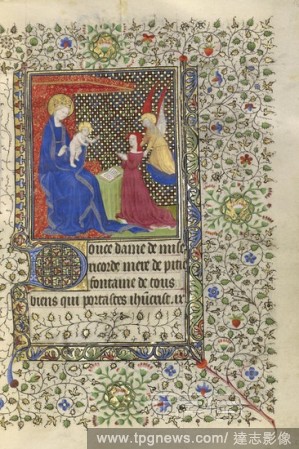 Doulce dame de mise
ricorde mere de pitie
fontaine de tous
biens qui portastes ihucrist. ix
www.tpgnews.com/ 達志影像